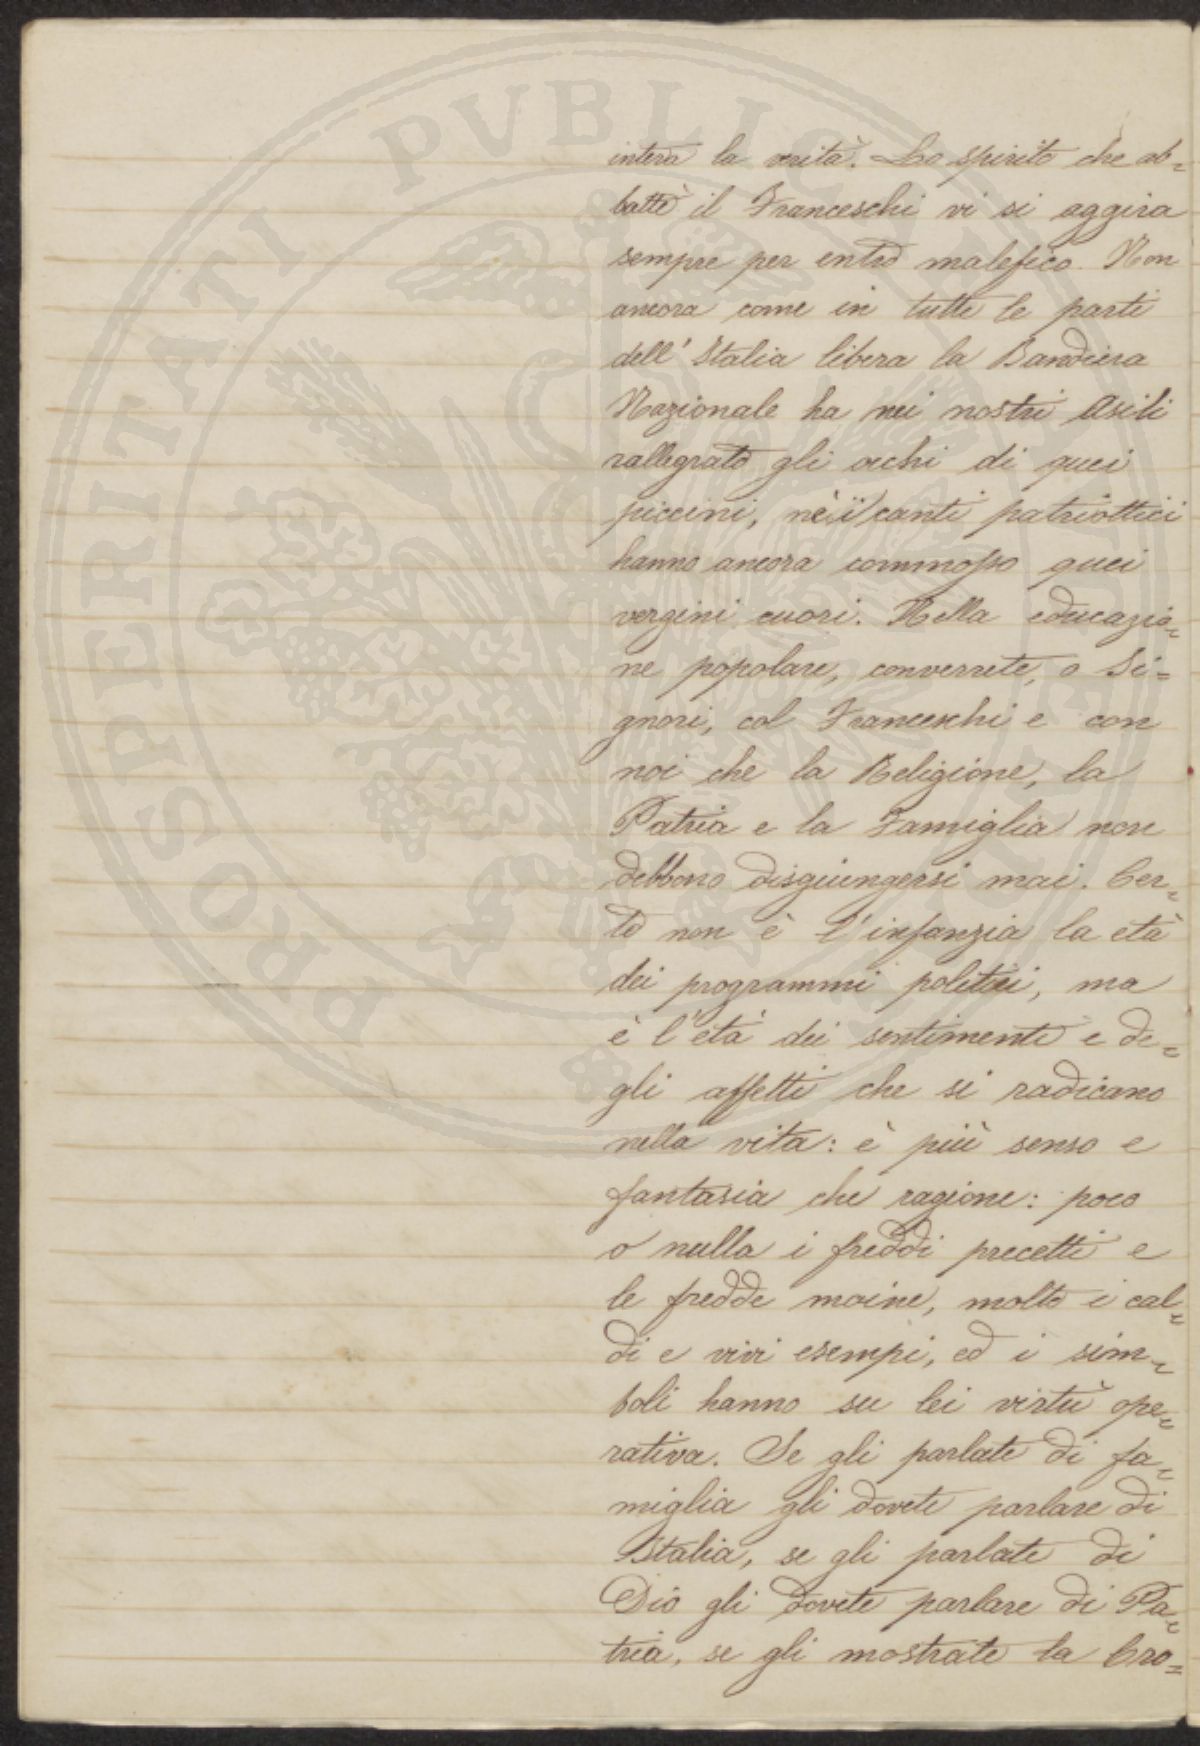 intera la verità. Lo spirito che ab=
battè il Franceschi vi si aggira
sempre per entro malefico. Non
ancora come in tutte le parti
dell'Italia libera la Bandiera
Nazionale ha nei nostri Asili
rallegrato gli occhi di quei
piccini, nè i canti patriottici
hanno ancora commosso quei
vergini cuori. Nella educazio=
ne popolare, converrete, o Si=
gnori, col Franceschi e con
noi che la Religione, la
Patria e la Famiglia non
debbono disgiungersi mai. Cer=
to non è l'infanzia la età
dei programmi politici, ma
è l'età dei sentimenti e de=
gli affetti che si radicano
nella vita: è più senso e
fantasia che ragione: poco
o nulla i freddi precetti e
le fredde moine, molto i cal=
di e vivi esempi, ed i sim=
boli hanno su lei virtù ope=
rativa. Se gli parlate di fa=
miglia gli dovete parlare di
Italia, se gli parlate di
Dio gli dovete parlare di Pa=
tria, se gli mostrate la Cro=
PROSPERITATI PVBLICAE